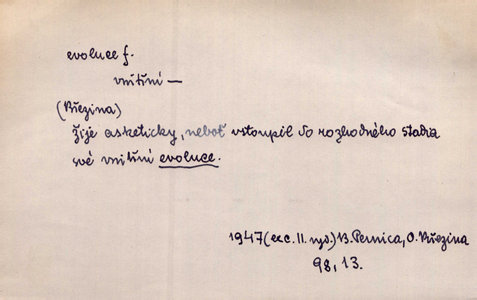 evoluce f.
vnitřní —
(Březina)
Žije asketicky, neboť vstoupil do rozhodného stadia
své vnitřní evoluce.
1947 (exc. II. vyd.) B. Pernica, O. Březina
98, 13.